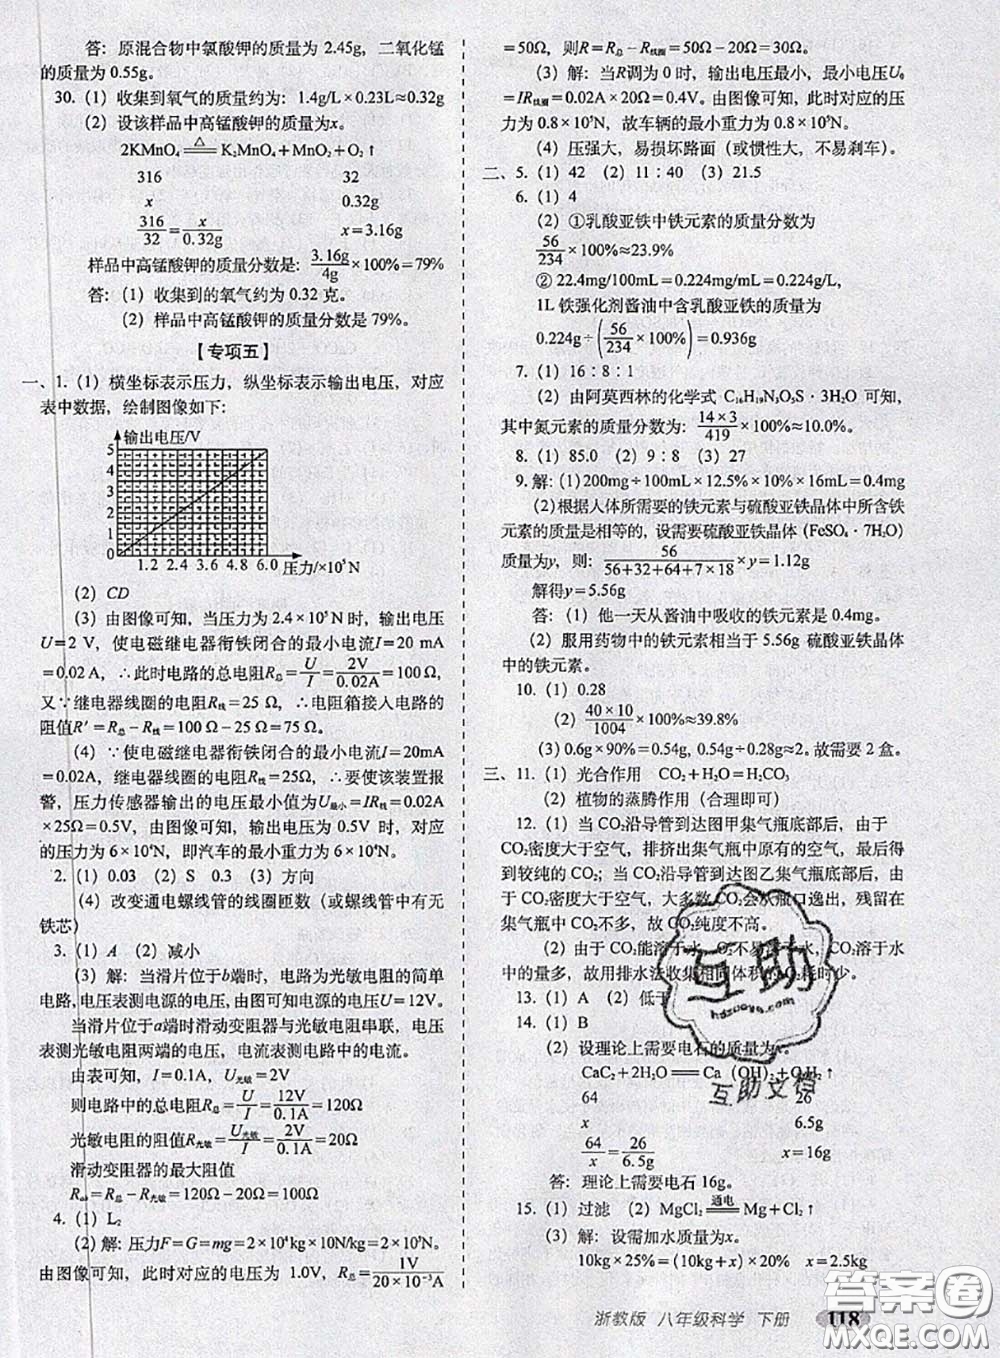 答：原混合物中氯酸钾的质量为 2.45g，二氧化锰
的质量为 0.55g。
30.（1）收集到氧气的质量约为：1.4g/L×0.23L≈0.32g
（2）设该样品中高锰酸钾的质量为x。
2KMnO₄ ==△== K₂MnO₄+MnO₂+O₂↑
316 32
x 0.32g
316/32 = x/0.32g x=3.16g
样品中高锰酸钾的质量分数是：3.16g/4g×100%=79%
答：（1）收集到的氧气约为 0.32 克。
（2）样品中高锰酸钾的质量分数是 79%。
【专项五】
一、1.（1）横坐标表示压力，纵坐标表示输出电压，对应
表中数据，绘制图像如下：
输出电压/V
5
4
3
2
1
0
1.2 2.4 3.6 4.8 6.0 压力/×10⁵N
（2）CD
（3）由图像可知，当压力为 2.4×10⁵N 时，输出电压
U=2 V，使电磁继电器衔铁闭合的最小电流I=20 mA
=0.02 A，∴此时电路的总电阻R总=U/I=2V/0.02A=100 Ω，
又∵继电器线圈的电阻R线=25 Ω，∴电阻箱接入电路的
阻值R′=R总−R线=100 Ω−25 Ω=75 Ω。
（4）∵使电磁继电器衔铁闭合的最小电流I=20mA
=0.02A，继电器线圈的电阻R线=25Ω，∴要使该装置报
警，压力传感器输出的电压最小值为U最小=IR线=0.02A
×25Ω=0.5V，由图像可知，输出电压为 0.5V 时，对应
的压力为 6×10⁴N，即汽车的最小重力为 6×10⁴N。
2.（1）0.03 （2）S 0.3 （3）方向
（4）改变通电螺线管的线圈匝数（或螺线管中有无
铁芯）
3.（1）A （2）减小
（3）解：当滑片位于b端时，电路为光敏电阻的简单
电路，电压表测电源的电压，由图可知电源的电压U=12V。
当滑片位于a端时滑动变阻器与光敏电阻串联，电压
表测光敏电阻两端的电压，电流表测电路中的电流。
由表可知，I=0.1A，U光敏=2V
则电路中的总电阻R总=U/I=12V/0.1A=120Ω
光敏电阻的阻值R光敏=U光敏/I=2V/0.1A=20Ω
滑动变阻器的最大阻值
Rab=R总−R光敏=120Ω−20Ω=100Ω
4.（1）L₂
（2）解：压力F=G=mg=2×10⁴kg×10N/kg=2×10⁵N。
由图像可知，此时对应的电压为 1.0V，R总=1V/20×10⁻³A
=50Ω，则R=R总−R线圈=50Ω−20Ω=30Ω。
（3）解：当R调为 0 时，输出电压最小，最小电压U₀
=IR线圈=0.02A×20Ω=0.4V。由图像可知，此时对应的压
力为 0.8×10⁵N，故车辆的最小重力为 0.8×10⁵N。
（4）压强大，易损坏路面（或惯性大，不易刹车）。
二、5.（1）42 （2）11∶40 （3）21.5
6.（1）4
（2）①乳酸亚铁中铁元素的质量分数为
56/234×100%≈23.9%
②22.4mg/100mL=0.224g/1000mL=0.224g/1L，
1L 铁强化剂酱油中含乳酸亚铁的质量为
0.224g÷(56/234×100%)=0.936g
7.（1）16∶8∶1
（2）由阿莫西林的化学式 C₁₆H₁₉N₃O₅S·3H₂O 可知，
其中氮元素的质量分数为：14×3/419×100%≈10.0%。
8.（1）85.0 （2）9∶8 （3）27
9.解：(1)200mg÷100mL×12.5%×10%×16mL=0.4mg
(2)根据人体所需要的铁元素与硫酸亚铁晶体中所含铁
元素的质量是相等的，设需要硫酸亚铁晶体 (FeSO₄·7H₂O)
质量为y，则：56/56+32+64+7×18×y=1.12g
解得y=5.56g
答：（1）他一天从酱油中吸收的铁元素是 0.4mg。
（2）服用药物中的铁元素相当于 5.56g 硫酸亚铁晶体
中的铁元素。
10.（1）0.28
（2）40×10/1004×100%≈39.8%
(3)0.6g×90%=0.54g, 0.54g÷0.28g≈2。故需要 2 盒。
三、11.（1）光合作用 CO₂+H₂O=H₂CO₃
（2）植物的蒸腾作用（合理即可）
12.（1）当 CO₂沿导管到达图甲集气瓶底部后，由于
CO₂密度大于空气，排挤出集气瓶中原有的空气，最后得
到较纯的 CO₂；当 CO₂沿导管到达图乙集气瓶底部后，由
于 CO₂密度大于空气，大多数 CO₂会从瓶口逸出，残留在
集气瓶中 CO₂不多，故 CO₂纯度不高。
（2）由于 CO₂能溶于水，O₂不易溶于水，CO₂溶于水
中的量多，故用排水法收集相同体积的 O₂耗时少。
13.（1）A （2）低于
14.（1）B
（2）设理论上需要电石的质量为x。
CaC₂+2H₂O══Ca(OH)₂+C₂H₂↑
64 26
x 6.5g
64/x=26/6.5g x=16g
答：理论上需要电石 16g。
15.（1）过滤 （2）MgCl₂ ==通电== Mg+Cl₂↑
（3）解：设需加水质量为x。
10kg×25%=(10kg+x)×20% x=2.5kg
互助
hdzuoye.com
互助文档
浙教版 八年级科学 下册 118
答案圈
MXQE.COM